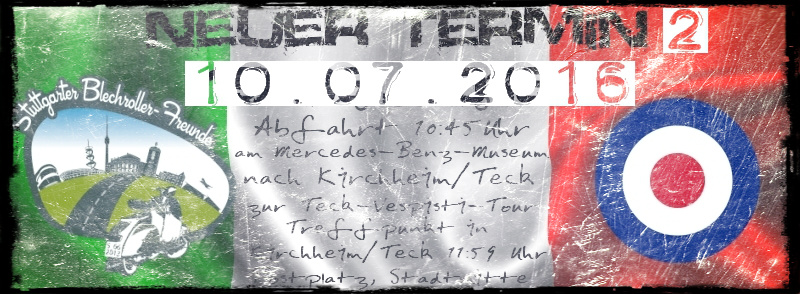 NEUER TERMIN 2
10.07.2016
Stuttgarter Blechroller-Freunde
Abfahrt 10:45 Uhr
am Mercedes-Benz-Museum
nach Kirchheim/Teck
zur Teck-Vespisti-Tour
Treffpunkt in
Kirchheim/Teck 11:59 Uhr
Stadtmitte